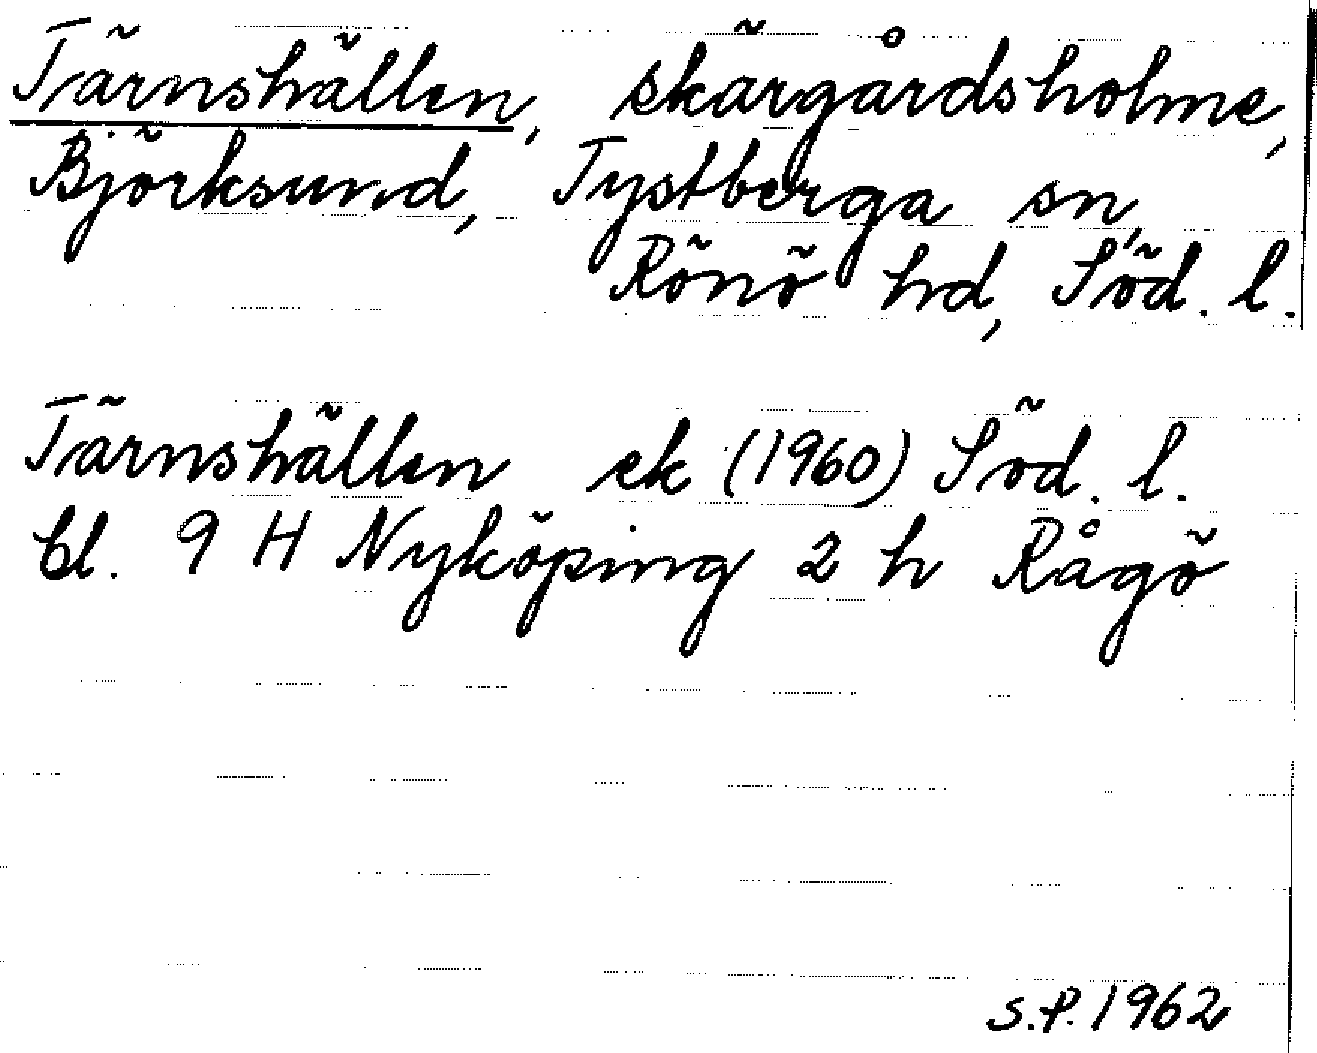 Tärnshällen, skärgårdsholme,
Björksund, Tystberga sn,
Rönö hd, Söd. l.
Tärnshällen ek (1960) Söd. l.
bl. 9 H Nyköping 2 h Rågö
S.P. 1962